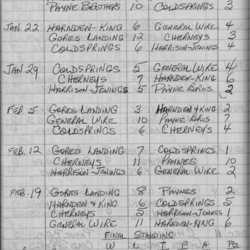 PAYNE BROTHERS 10 COLDSPRINGS 3
JAN 22 HARNDEN-KING 6 GENERAL WIRE 4
GORES LANDING 12 CHERNEYS 3
COLDSPRINGS 6 HARRISON-JENNINGS 4
JAN 29 COLDSPRINGS 5 GENERAL WIRE 4
CHERNEYS 7 HARNDEN-KING 6
HARRISON-JENNINGS 5 PAYNE BROS. 2
FEB 5 GORES LANDING 3 HARNDEN & KING 2
GENERAL WIRE 10 PAYNE BROS 7
COLDSPRINGS 6 CHERNEYS 4
FEB. 12 GORES LANDING 7 COLDSPRINGS 1
CHERNEYS 11 PAYNES 10
HARRISON-JENNINGS 6 GENERAL WIRE 2
FEB. 19 GORES LANDING 8 PAYNES 2
HARNDEN & KING 6 COLDSPRINGS 5
CHERNEYS 5 HARRISON-JENNINGS 1
GENERAL WIRE 11 HARNDEN-KING 6
FINAL STANDING
W L T F A P